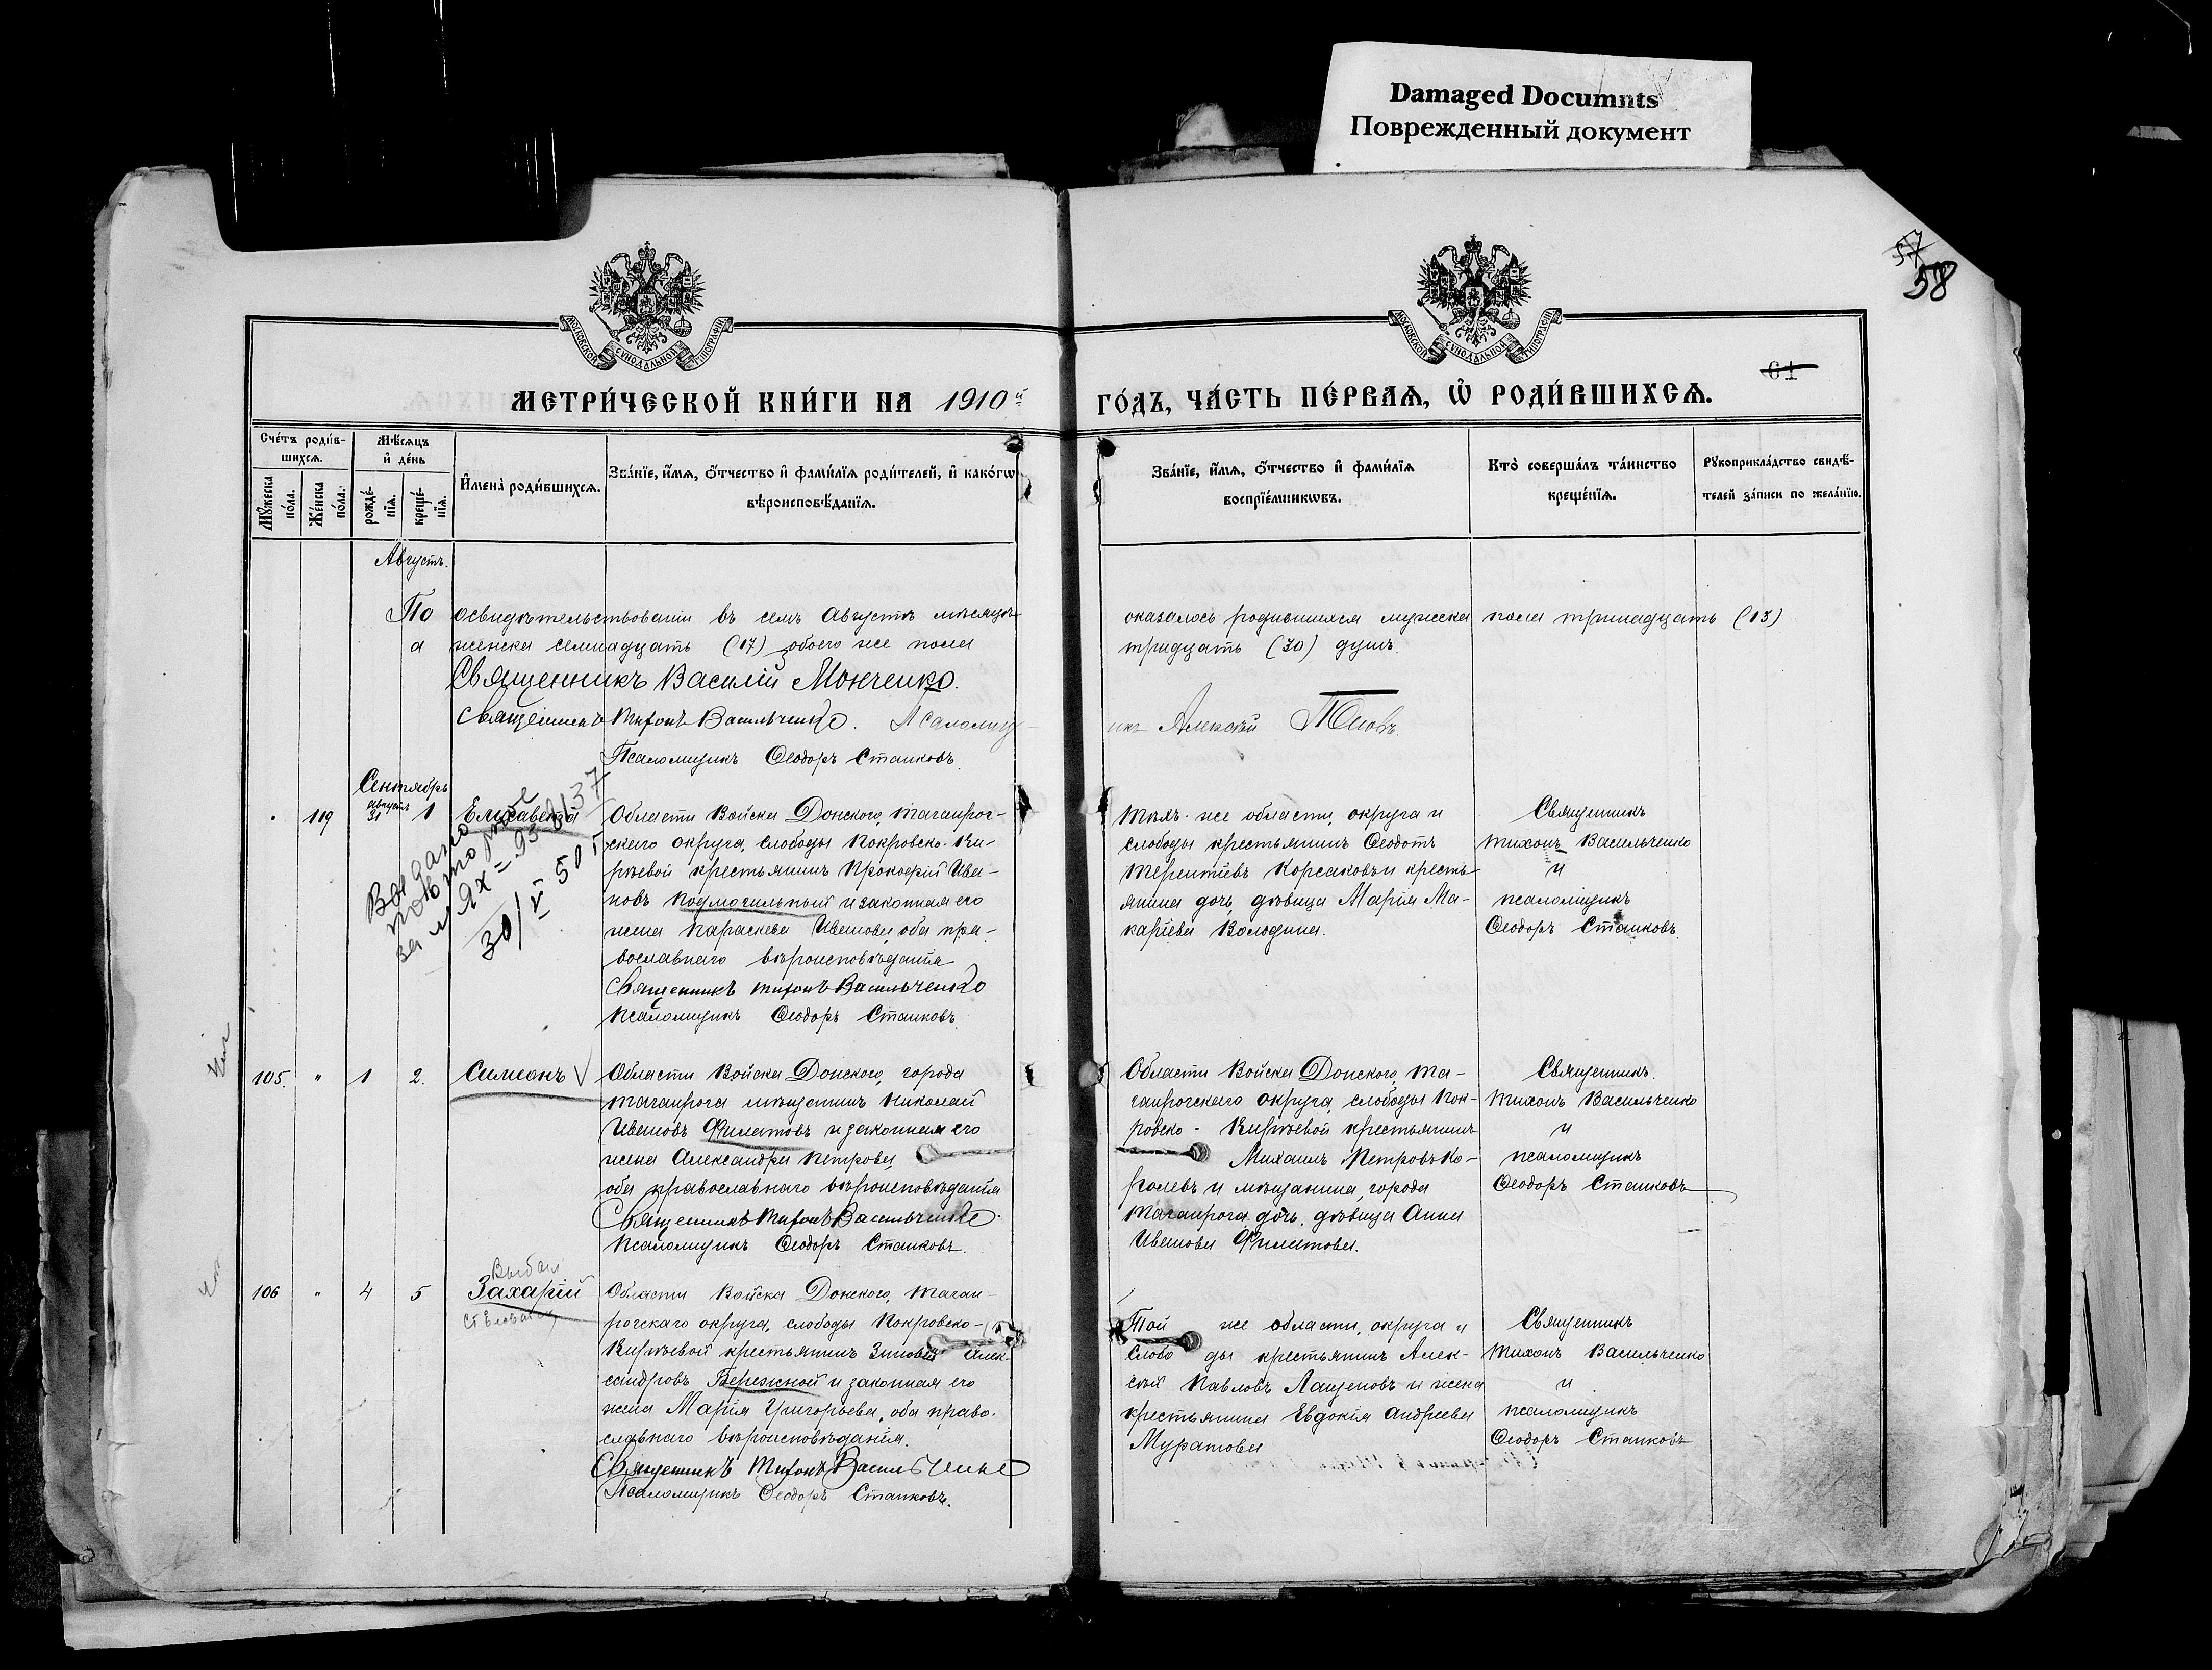 Damaged Documnts
Поврежденный документ
57
58
МОСКОВСКОЙ СѴНОДАЛЬНОЙ ТИПОГРАФІИ
МОСКОВСКОЙ СѴНОДАЛЬНОЙ ТИПОГРАФІИ
61
МЕТРИ́ЧЕСКОЙ КНИ́ГИ НА 1910й
ГО́ДЪ, ЧА́СТЬ ПЕ́РВАѦ, Ѡ҆ РОДИ́ВШИХСѦ.
Сче́тъ роди́в-
шихсѧ.
Мꙋ́жеска по́ла.
Же́нска по́ла.
Мѣ́сѧцъ и҆ де́нь
рожде́-
нїѧ.
креще́-
нїѧ.
И҆мена̀ роди́вшихсѧ.
Зва́нїе, и҆́мѧ, ѻ҆́тчество и҆ фами́лїѧ роди́телей, и҆ како́гѡ
вѣроисповѣ́данїѧ.
Зва́нїе, и҆́мѧ, ѻ҆́тчество и҆ фами́лїѧ
воспрїе́мникѡвъ.
Кто̀ соверша́лъ та́инство
креще́нїѧ.
Рꙋкоприкла́дство свидѣ́-
телей за́писи по жела́нїю.
Августъ.
По освидѣтельствованіи въ семъ Августѣ мѣсяцѣ
оказалось родившихся мужска пола тринадцать (13)
а женска семнадцать (17) обоего же пола
тридцать (30) душъ.
Священникъ Василій Монченко.
Священникъ Тихонъ Васильченко. Псаломщ
икъ Алексѣй
Псаломщикъ Ѳеодоръ Станковъ.
Сентябрь
119
августъ
31
1
Елисавета
Выдано
повторное
за
30/V 50
Области Войска Донского, Таганрог-
скаго округа, слободы Покровско-Ки-
рѣевой крестьянинъ Прокофій Ива-
новъ Подмогильный и законная его
жена Параскева Иванова, оба пра-
вославнаго вѣроисповѣданія
Священникъ Тихонъ Васильченко
Псаломщикъ Ѳеодоръ Станковъ.
Тѣхъ-же области, округа и
слободы крестьянинъ Ѳеодотъ
Терентіевъ Корсаковъ и кресть-
янина дочь, дѣвица Марія Ма-
каріева Володина.
Священникъ
Тихонъ Васильченко
и
псаломщикъ
Ѳеодоръ Станковъ.
105. " 1 2.
Симеонъ
Области Войска Донского, города
Таганрога мѣщанинъ Николай
Ивановъ Филатовъ и законная его
жена Александра Петрова,
оба православнаго вѣроисповѣданія
Священникъ Тихонъ Васильченко.
Псаломщикъ Ѳеодоръ Станковъ.
Области Войска Донского, Та-
ганрогскаго округа, слободы Пок-
ровско-Кирѣевой крестьянинъ
Михаилъ Петровъ Ко-
ролевъ и мѣщанина, города
Таганрога дочь, дѣвица Анна
Иванова Филатова.
Священникъ.
Тихонъ Васильченко
и
псаломщикъ
Ѳеодоръ Станковъ
106 " 4 5
Захарій
Области Войска Донского, Таган-
рогскаго округа, слободы Покровско-
Кирѣевой крестьянинъ Зиновій Алек-
сандровъ Бережной и законная его
жена Марія Григорьева, оба право-
славнаго вѣроисповѣданія.
Священникъ Тихонъ Васильченко
Псаломщикъ Ѳеодоръ Станковъ.
Той же области, округа и
слободы крестьянинъ Алек-
сѣй Павловъ Лащеновъ и жена
крестьянина Евдокія Андреева
Муратова
Священникъ
Тихонъ Васильченко
и
псаломщикъ
Ѳеодоръ Станковъ